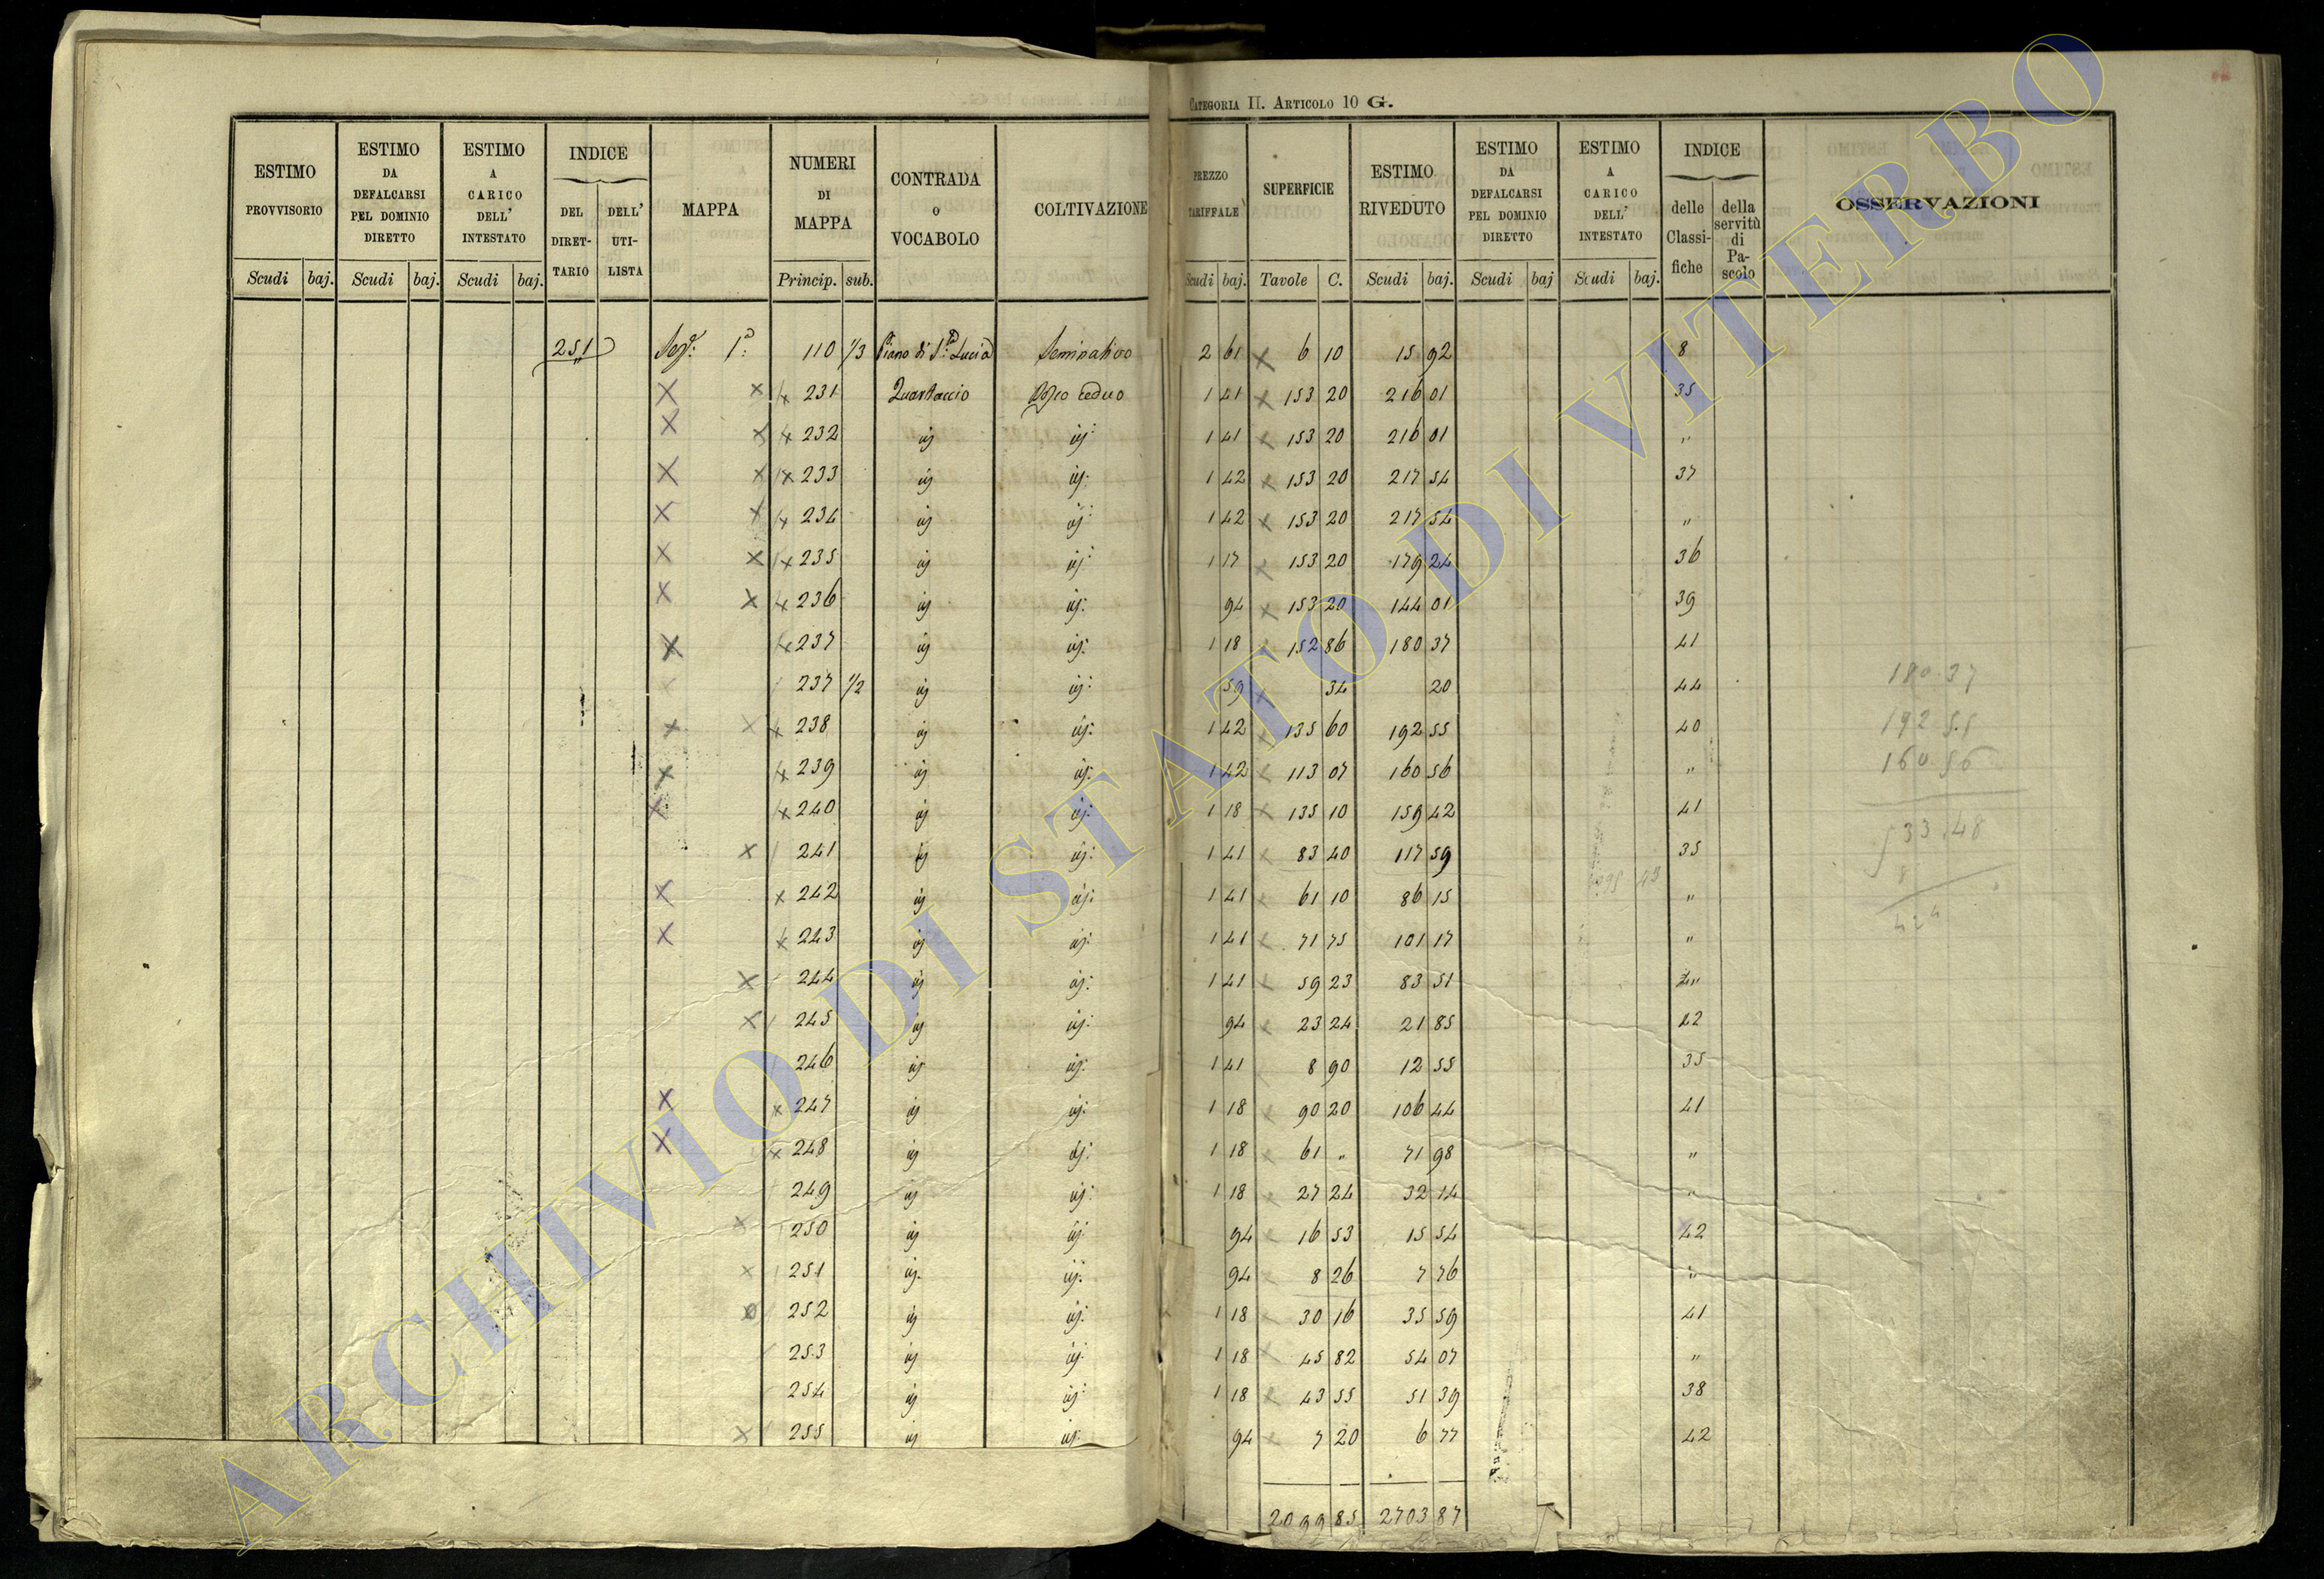 CATEGORIA II. ARTICOLO 10 G.
ESTIMO PROVVISORIO Scudi baj.
ESTIMO DA DEFALCARSI PEL DOMINIO DIRETTO Scudi baj.
ESTIMO A CARICO DELL' INTESTATO Scudi baj.
INDICE DEL DIRETTARIO DELL' UTILISTA
MAPPA
NUMERI DI MAPPA Princip. sub.
CONTRADA O VOCABOLO
COLTIVAZIONE
PREZZO TARIFFALE Scudi baj.
SUPERFICIE Tavole C.
ESTIMO RIVEDUTO Scudi baj.
ESTIMO DA DEFALCARSI PEL DOMINIO DIRETTO Scudi baj
ESTIMO A CARICO DELL' INTESTATO Scudi baj.
INDICE delle Classifiche della servitù di Pascolo
OSSERVAZIONI
251 Sez. 1a: 110 1/3 Piano di Sa. Lucia Seminativo 2 61 6 10 15 92 8
231 Quartaccio Bosco ceduo 1 41 153 20 216 01 35
232 ij ij: 1 41 153 20 216 01 "
233 ij ij: 1 42 153 20 217 54 37
234 ij ij: 1 42 153 20 217 54 "
235 ij ij: 1 17 153 20 179 24 36
236 ij ij: 94 153 20 144 01 39
237 ij ij: 1 18 152 86 180 37 41
237 1/2 ij ij: 59 34 20 44
238 ij ij: 1 42 135 60 192 55 40
239 ij ij: 1 42 113 07 160 56 "
240 ij ij: 1 18 135 10 159 42 41
241 ij ij: 1 41 83 40 117 59 35
242 ij ij: 1 41 61 10 86 15 "
243 ij ij: 1 41 71 75 101 17 "
244 ij ij: 1 41 59 23 83 51 "
245 ij ij: 94 23 24 21 85 42
246 ij ij: 1 41 8 90 12 55 35
247 ij ij: 1 18 90 20 106 44 41
248 ij ij: 1 18 61 " 71 98 "
249 ij ij: 1 18 27 24 32 14 "
250 ij ij: 94 16 53 15 54 42
251 ij ij: 94 8 26 7 76 "
252 ij ij: 1 18 30 16 35 59 41
253 ij ij: 1 18 45 82 54 07 "
254 ij ij: 1 18 43 55 51 39 38
255 ij ij: 94 7 20 6 77 42
2099 85 2703 87
180.37
192 55
160 56
533.48
8
424
ARCHIVIO DI STATO DI VITERBO